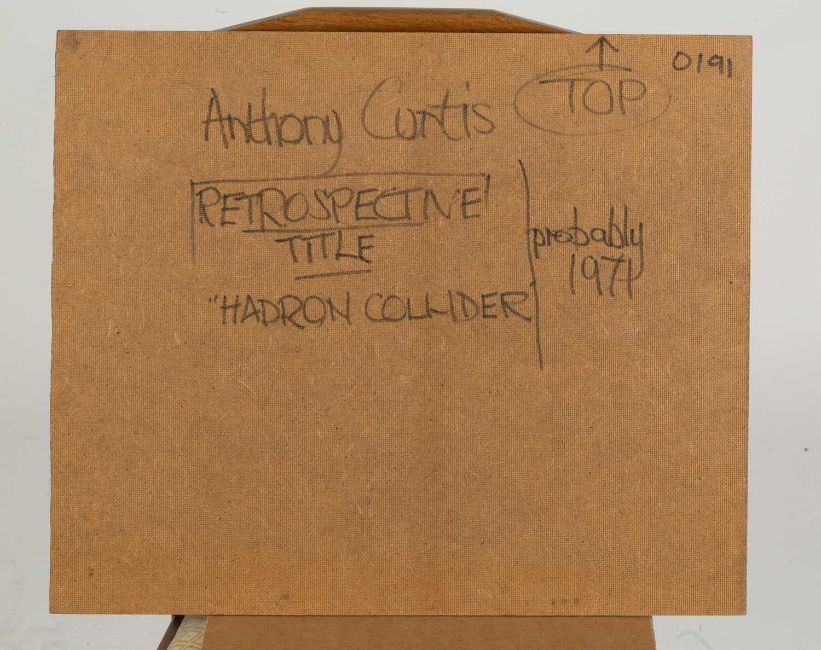 0191
TOP
Anthony Curtis
'RETROSPECTIVE'
TITLE
probably
1971
"HADRON COLLIDER"